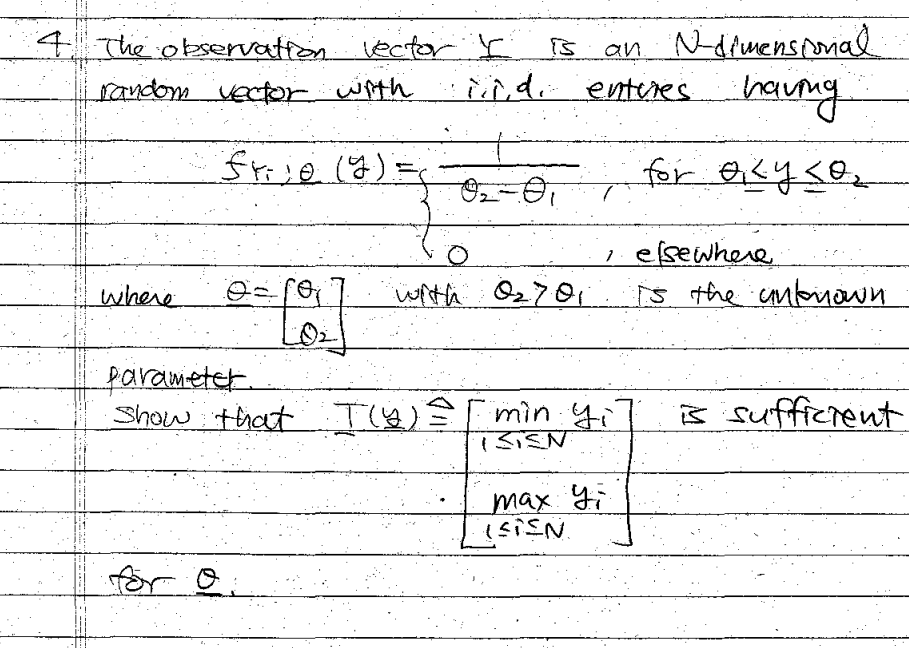 4. The observation vector Y is an N-dimensional
random vector with i.i.d. entries having
f_{Y_i; θ}(y) = { 1/(θ₂-θ₁), for θ₁ ≤ y ≤ θ₂
0, elsewhere
where θ = [θ₁ θ₂] with θ₂ > θ₁ is the unknown
parameter.
Show that T(y) ≜ [min_{1≤i≤N} y_i
max_{1≤i≤N} y_i] is sufficient
for θ.